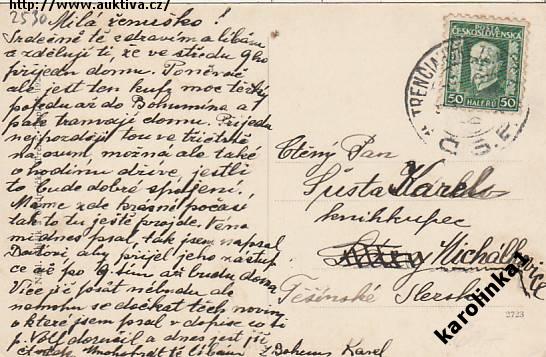 http://www.auktiva.cz/
2530
Milá ženuško!
Srdečně tě zdravím a líbám
a zděluji ti, že ve středu 9ho
přijedu domu. Poněvač
ale jest ten kufr moc těžký
pojedu až do Bohumína a
pak tramvají domu. Přijedu
nejpozději tou ve třičtvrtě
na osum, možná ale také
o hodinu dříve, jestli
to bude dobré spojení.
Máme zde krásné počasí
tak to tu ještě projde. Véna
mi dnes psal, tak jsem napsal
Bartoni, aby přijel jeho zástup
ce až po 10. tím až budu doma
Více již psát nebudu ale
nemohu se dočkat těch novin
o které jsem psal v dopise co ti
p. Volf doručil a dnes jest již
líbám
Z Bohem Karel
POŠTA
ČESKOSLOVENSKÁ
50 HALÉŘŮ 50
TRENČIA
Č.S.P.
Ctěný Pan
Šústa Karel
knihkupec
Michálkovice
Těšínské Slezsko
2723
karolinka1